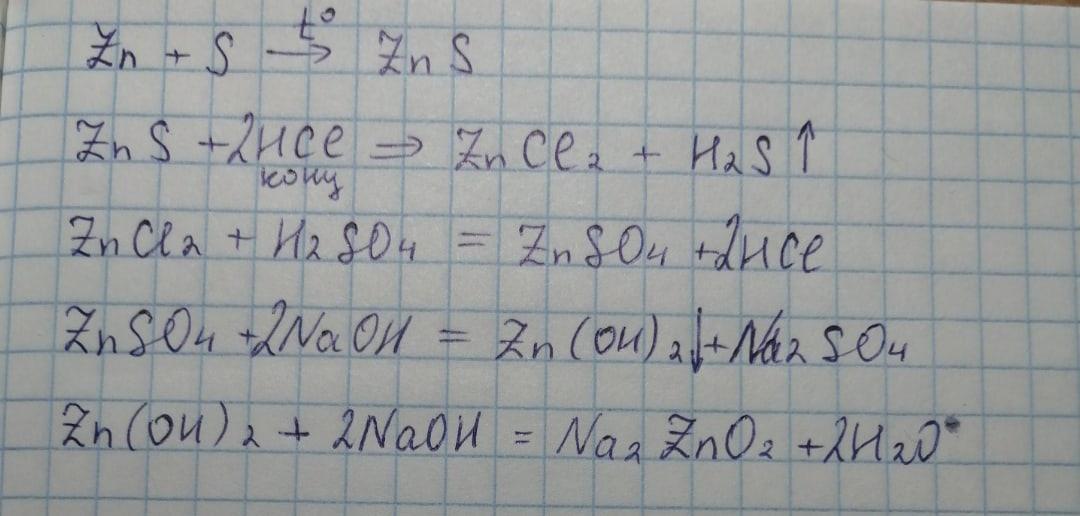 Zn + S t° → ZnS
ZnS + 2HCl конц ⇒ ZnCl₂ + H₂S↑
ZnCl₂ + H₂SO₄ = ZnSO₄ + 2HCl
ZnSO₄ + 2NaOH = Zn(OH)₂↓ + Na₂SO₄
Zn(OH)₂ + 2NaOH = Na₂ZnO₂ + 2H₂O